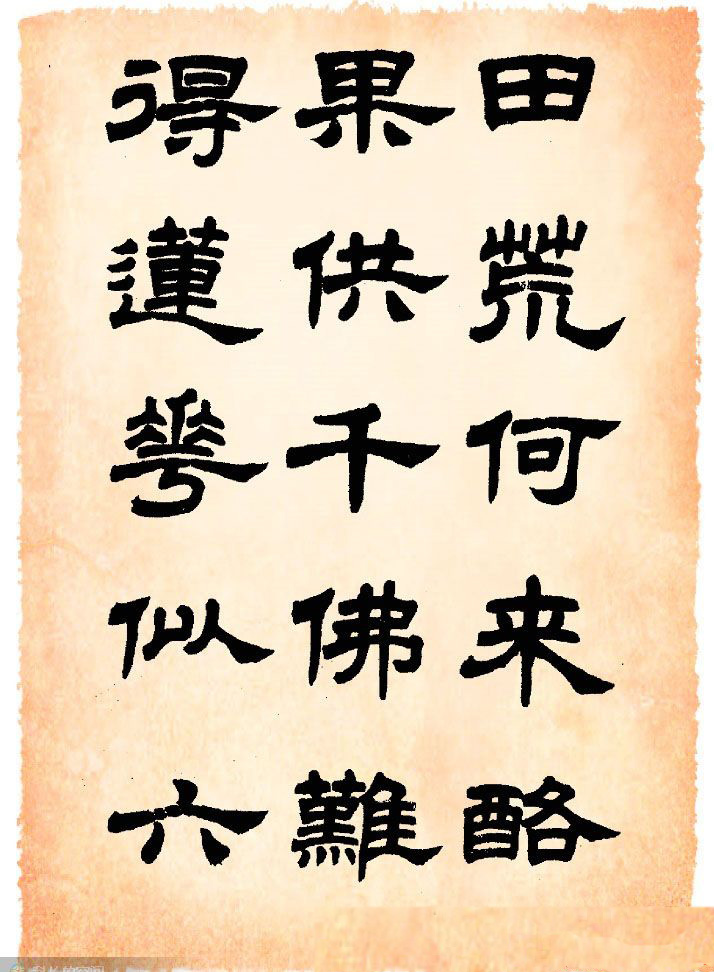 田荒何来酪
果供千佛難
得蓮花似六